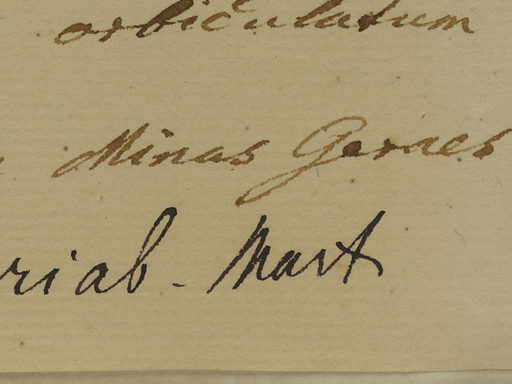 orbiculatum
Minas Geraes
riab. Mart